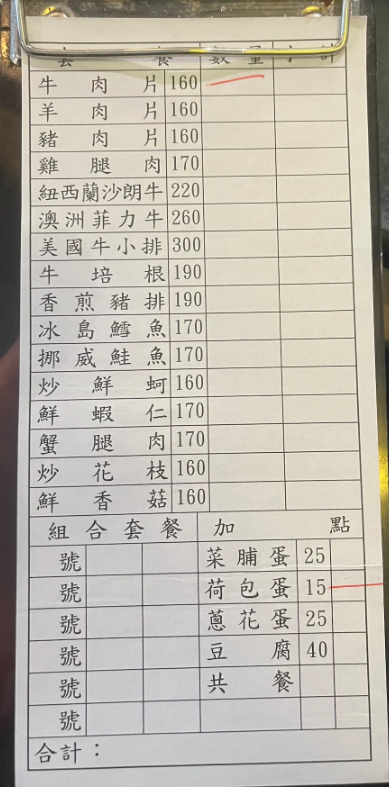 套餐 數量 小計
牛肉片 160
羊肉片 160
豬肉片 160
雞腿肉 170
紐西蘭沙朗牛 220
澳洲菲力牛 260
美國牛小排 300
牛培根 190
香煎豬排 190
冰島鱈魚 170
挪威鮭魚 170
炒鮮蚵 160
鮮蝦仁 170
蟹腿肉 170
炒花枝 160
鮮香菇 160
組合套餐 加點
號 菜脯蛋 25
號 荷包蛋 15
號 蔥花蛋 25
號 豆腐 40
號 共餐
號
合計：